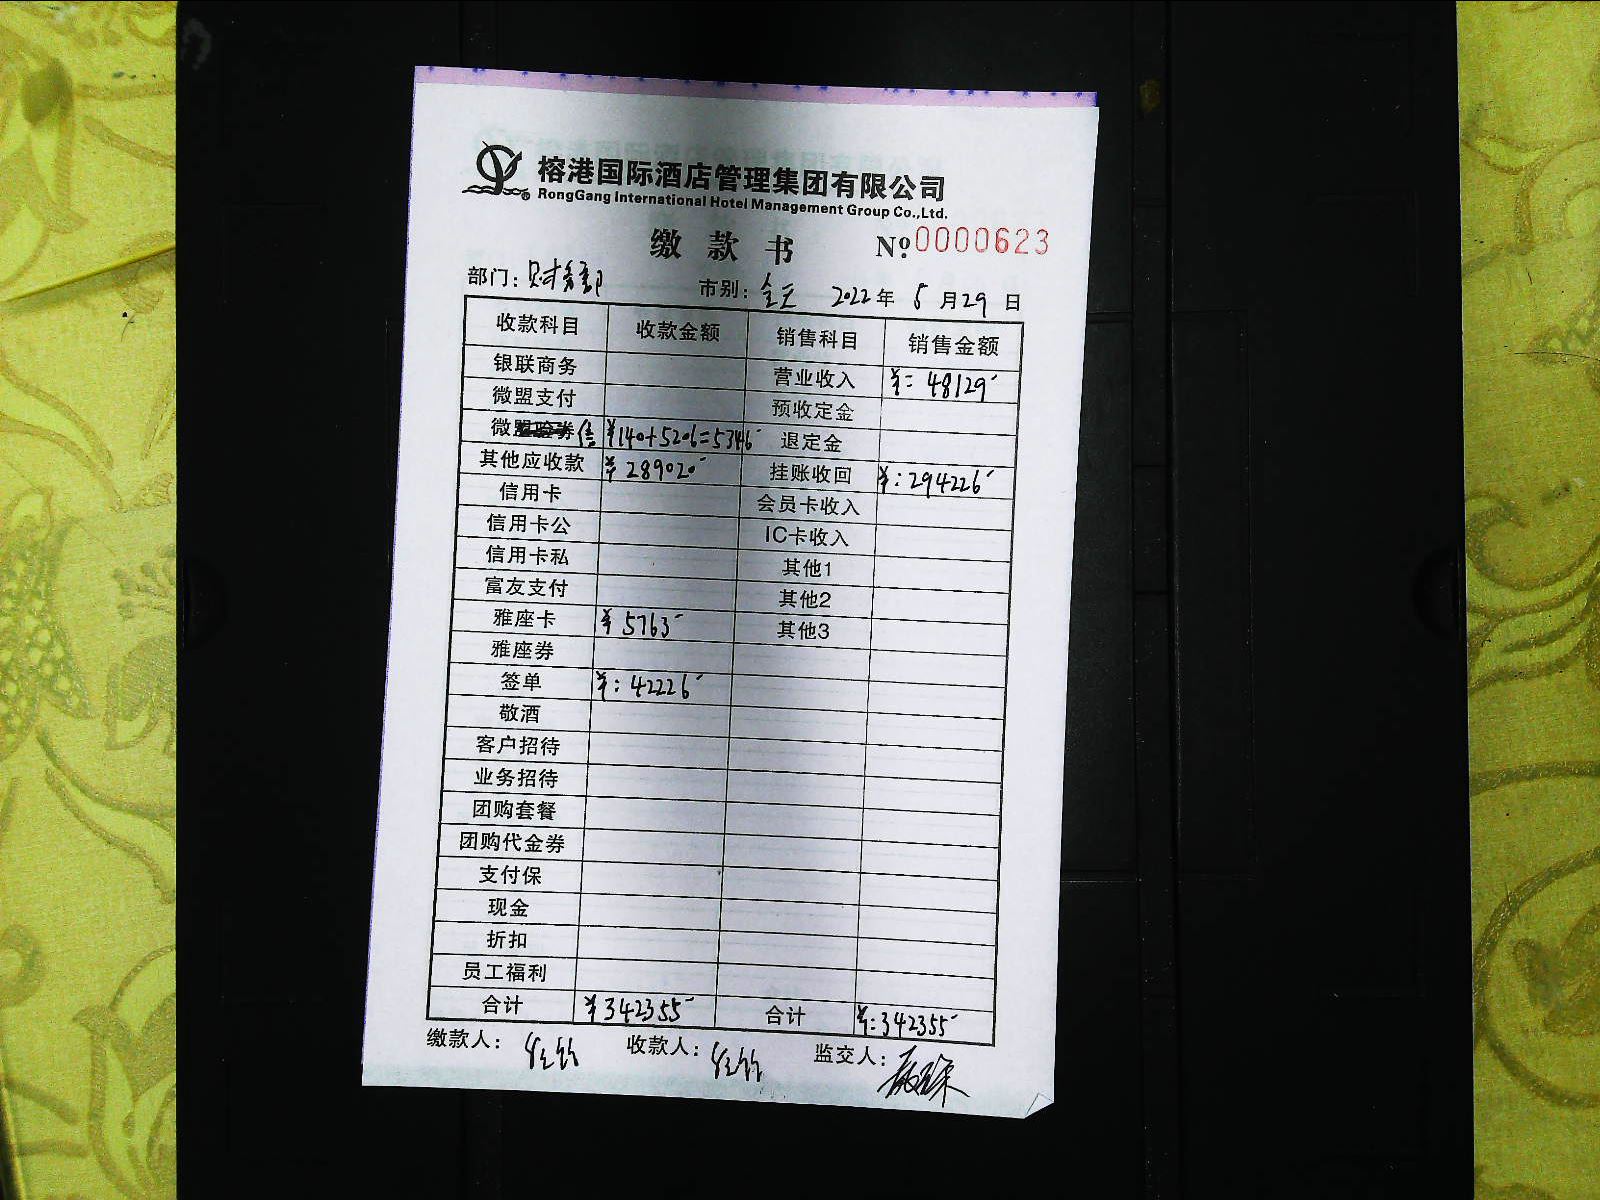 榕港国际酒店管理集团有限公司
RongGang International Hotel Management Group Co.,Ltd.
缴款书 №:0000623
部门：财务部 市别：全天 2022年5月29日
收款科目 收款金额 销售科目 销售金额
银联商务 营业收入 ¥:48129-
微盟支付 预收定金
微信 ¥140+5206=5346- 退定金
其他应收款 ¥289020- 挂账收回 ¥:294226-
信用卡 会员卡收入
信用卡公 IC卡收入
信用卡私 其他1
富友支付 其他2
雅座卡 ¥5763- 其他3
雅座券
签单 ¥:42226-
敬酒
客户招待
业务招待
团购套餐
团购代金券
支付保
现金
折扣
员工福利
合计 ¥342355- 合计 ¥:342355-
缴款人： 收款人： 监交人：